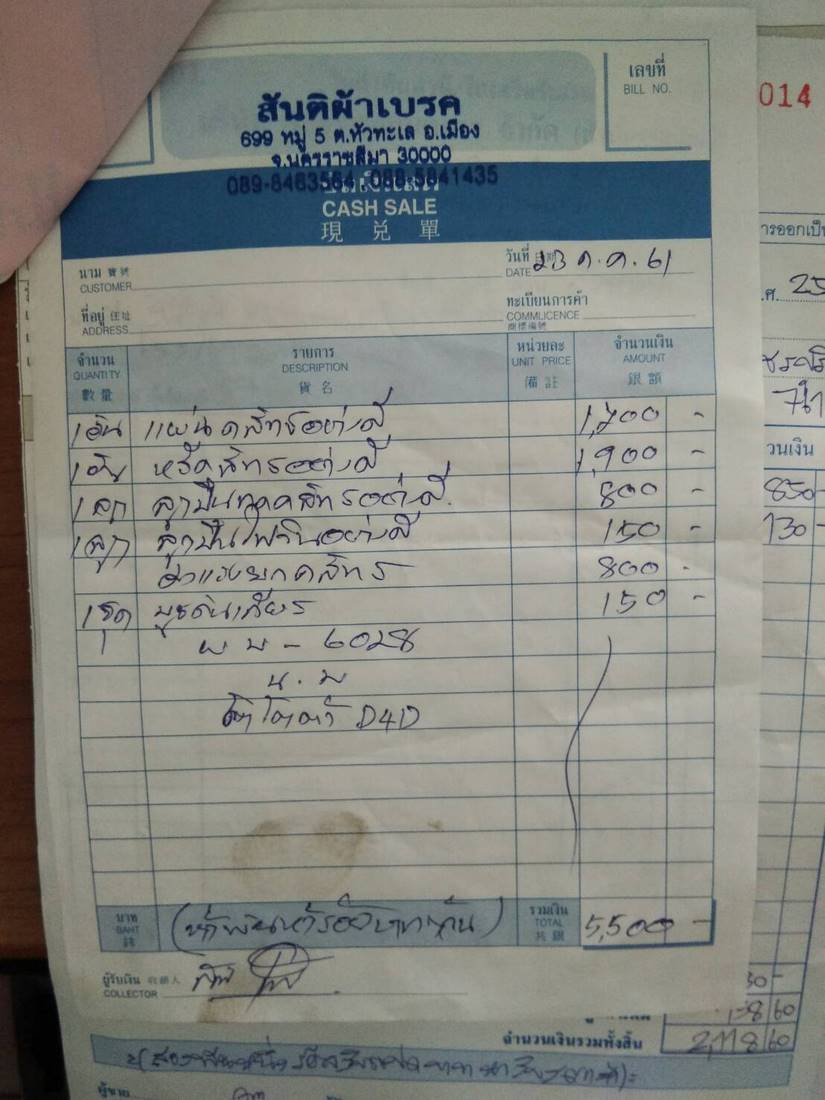 เลขที่
BILL NO.
014
สันติผ้าเบรค
699 หมู่ 5 ต.หัวทะเล อ.เมือง
จ.นครราชสีมา 30000
089-8463564, 088-5841435
CASH SALE
現兌單
นาม 寶號
CUSTOMER
วันที่ 日期 23 ต.ค. 61
DATE
ที่อยู่ 住址
ADDRESS
ทะเบียนการค้า
COMMLICENCE
商標編號
จำนวน รายการ หน่วยละ จำนวนเงิน
QUANTITY DESCRIPTION UNIT PRICE AMOUNT
數量 貨名 備註 銀額
1 อัน แผ่นคลัทธ์อย่างดี 1,700 -
1 อัน หวีคลัทธ์อย่างดี 1,900 -
1 ลูก ลูกปืนกดคลัทธ์อย่างดี 800 -
1 ลูก ลูกปืนไฟวินอย่างดี 150 -
ค่าแรงยกคลัทธ์ 800 -
1 ชุด บูชคันเกียร์ 150 -
ผพ - 6028
น.ม
โตโยต้า D4D
บาท (ห้าพันห้าร้อยบาทถ้วน) รวมเงิน 5,500 -
BAHT TOTAL
共銀
ผู้รับเงิน 收銀人
COLLECTOR
การออกเป็น
ศ. 25
วนเงิน
850 -
130 -
30 -
138 60
จำนวนเงินรวมทั้งสิ้น 2,118 60
ผู้ขาย